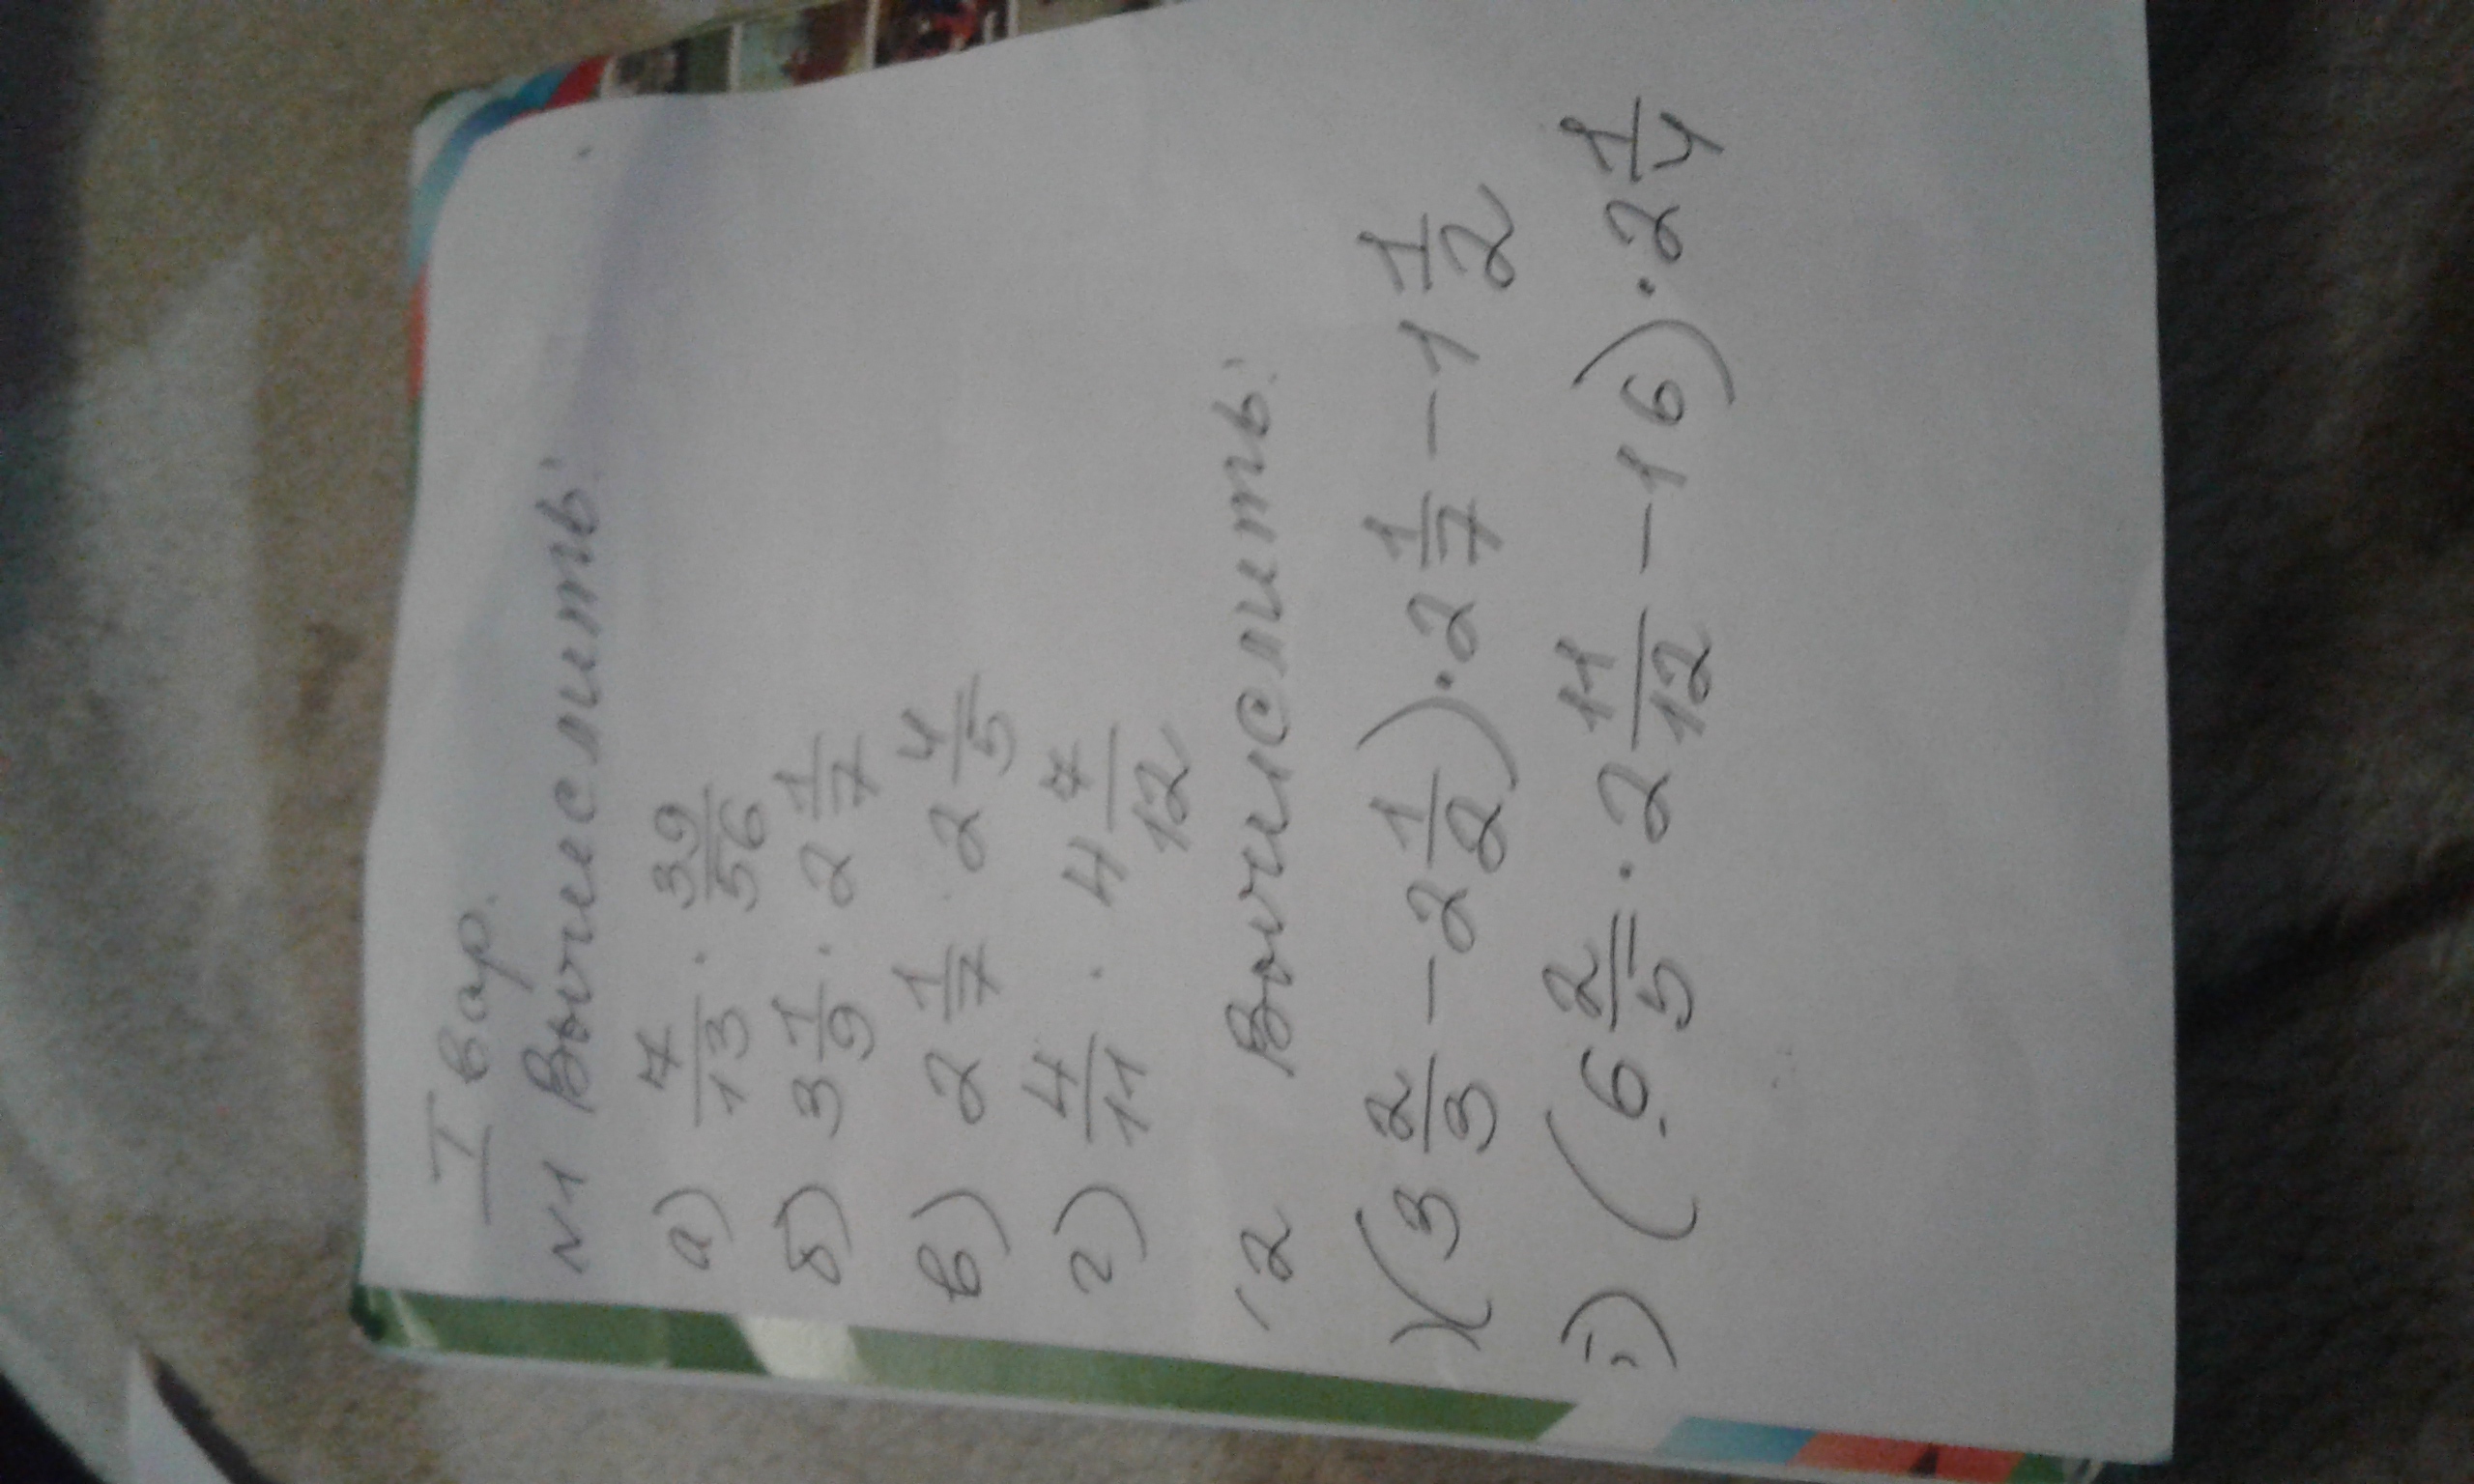 I вар.
N1 Вычислить:
а) 7/13 · 39/56
б) 3 1/9 · 2 1/7
в) 2 1/7 · 2 4/5
г) 4/11 · 4 7/12
2 Вычислить:
) (3 2/3 - 2 1/2) · 2 1/7 - 1 1/2
) (6 2/5 · 2 11/12 - 16) · 2 1/4